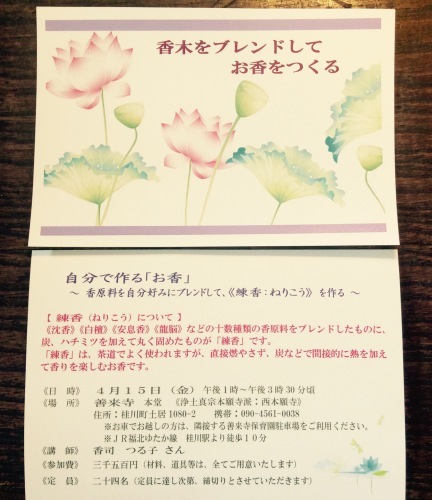 香木をブレンドして
お香をつくる
自分で作る「お香」
～ 香原料を自分好みにブレンドして、《練香：ねりこう》 を作る ～
【 練香（ねりこう）について 】
《沈香》《白檀》《安息香》《龍脳》などの十数種類の香原料をブレンドしたものに、
炭、ハチミツを加えて丸く固めたものが「練香」です。
「練香」は、茶道でよく使われますが、直接燃やさず、炭などで間接的に熱を加え
て香りを楽しむお香です。
《日 時》 ４月１５日（金）午後１時～午後３時３０分頃
《場 所》 善来寺 本堂 《浄土真宗本願寺派：西本願寺》
住所：桂川町土居 1080-2 携帯：090-4561-0038
※お車でお越しの方は、隣接する善来寺保育園駐車場をご利用ください。
※ＪＲ福北ゆたか線 桂川駅より徒歩１０分
《講 師》 香司 つる子 さん
《参加費》 三千五百円（材料、道具等は、全てご用意いたします）
《定 員》 二十四名（定員に達し次第、締切りとさせていただきます）